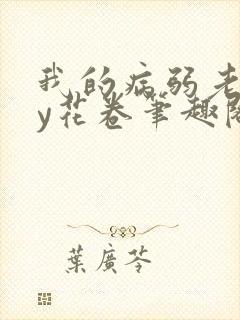 我的病弱老
y花卷笔趣阁
葉廣芩